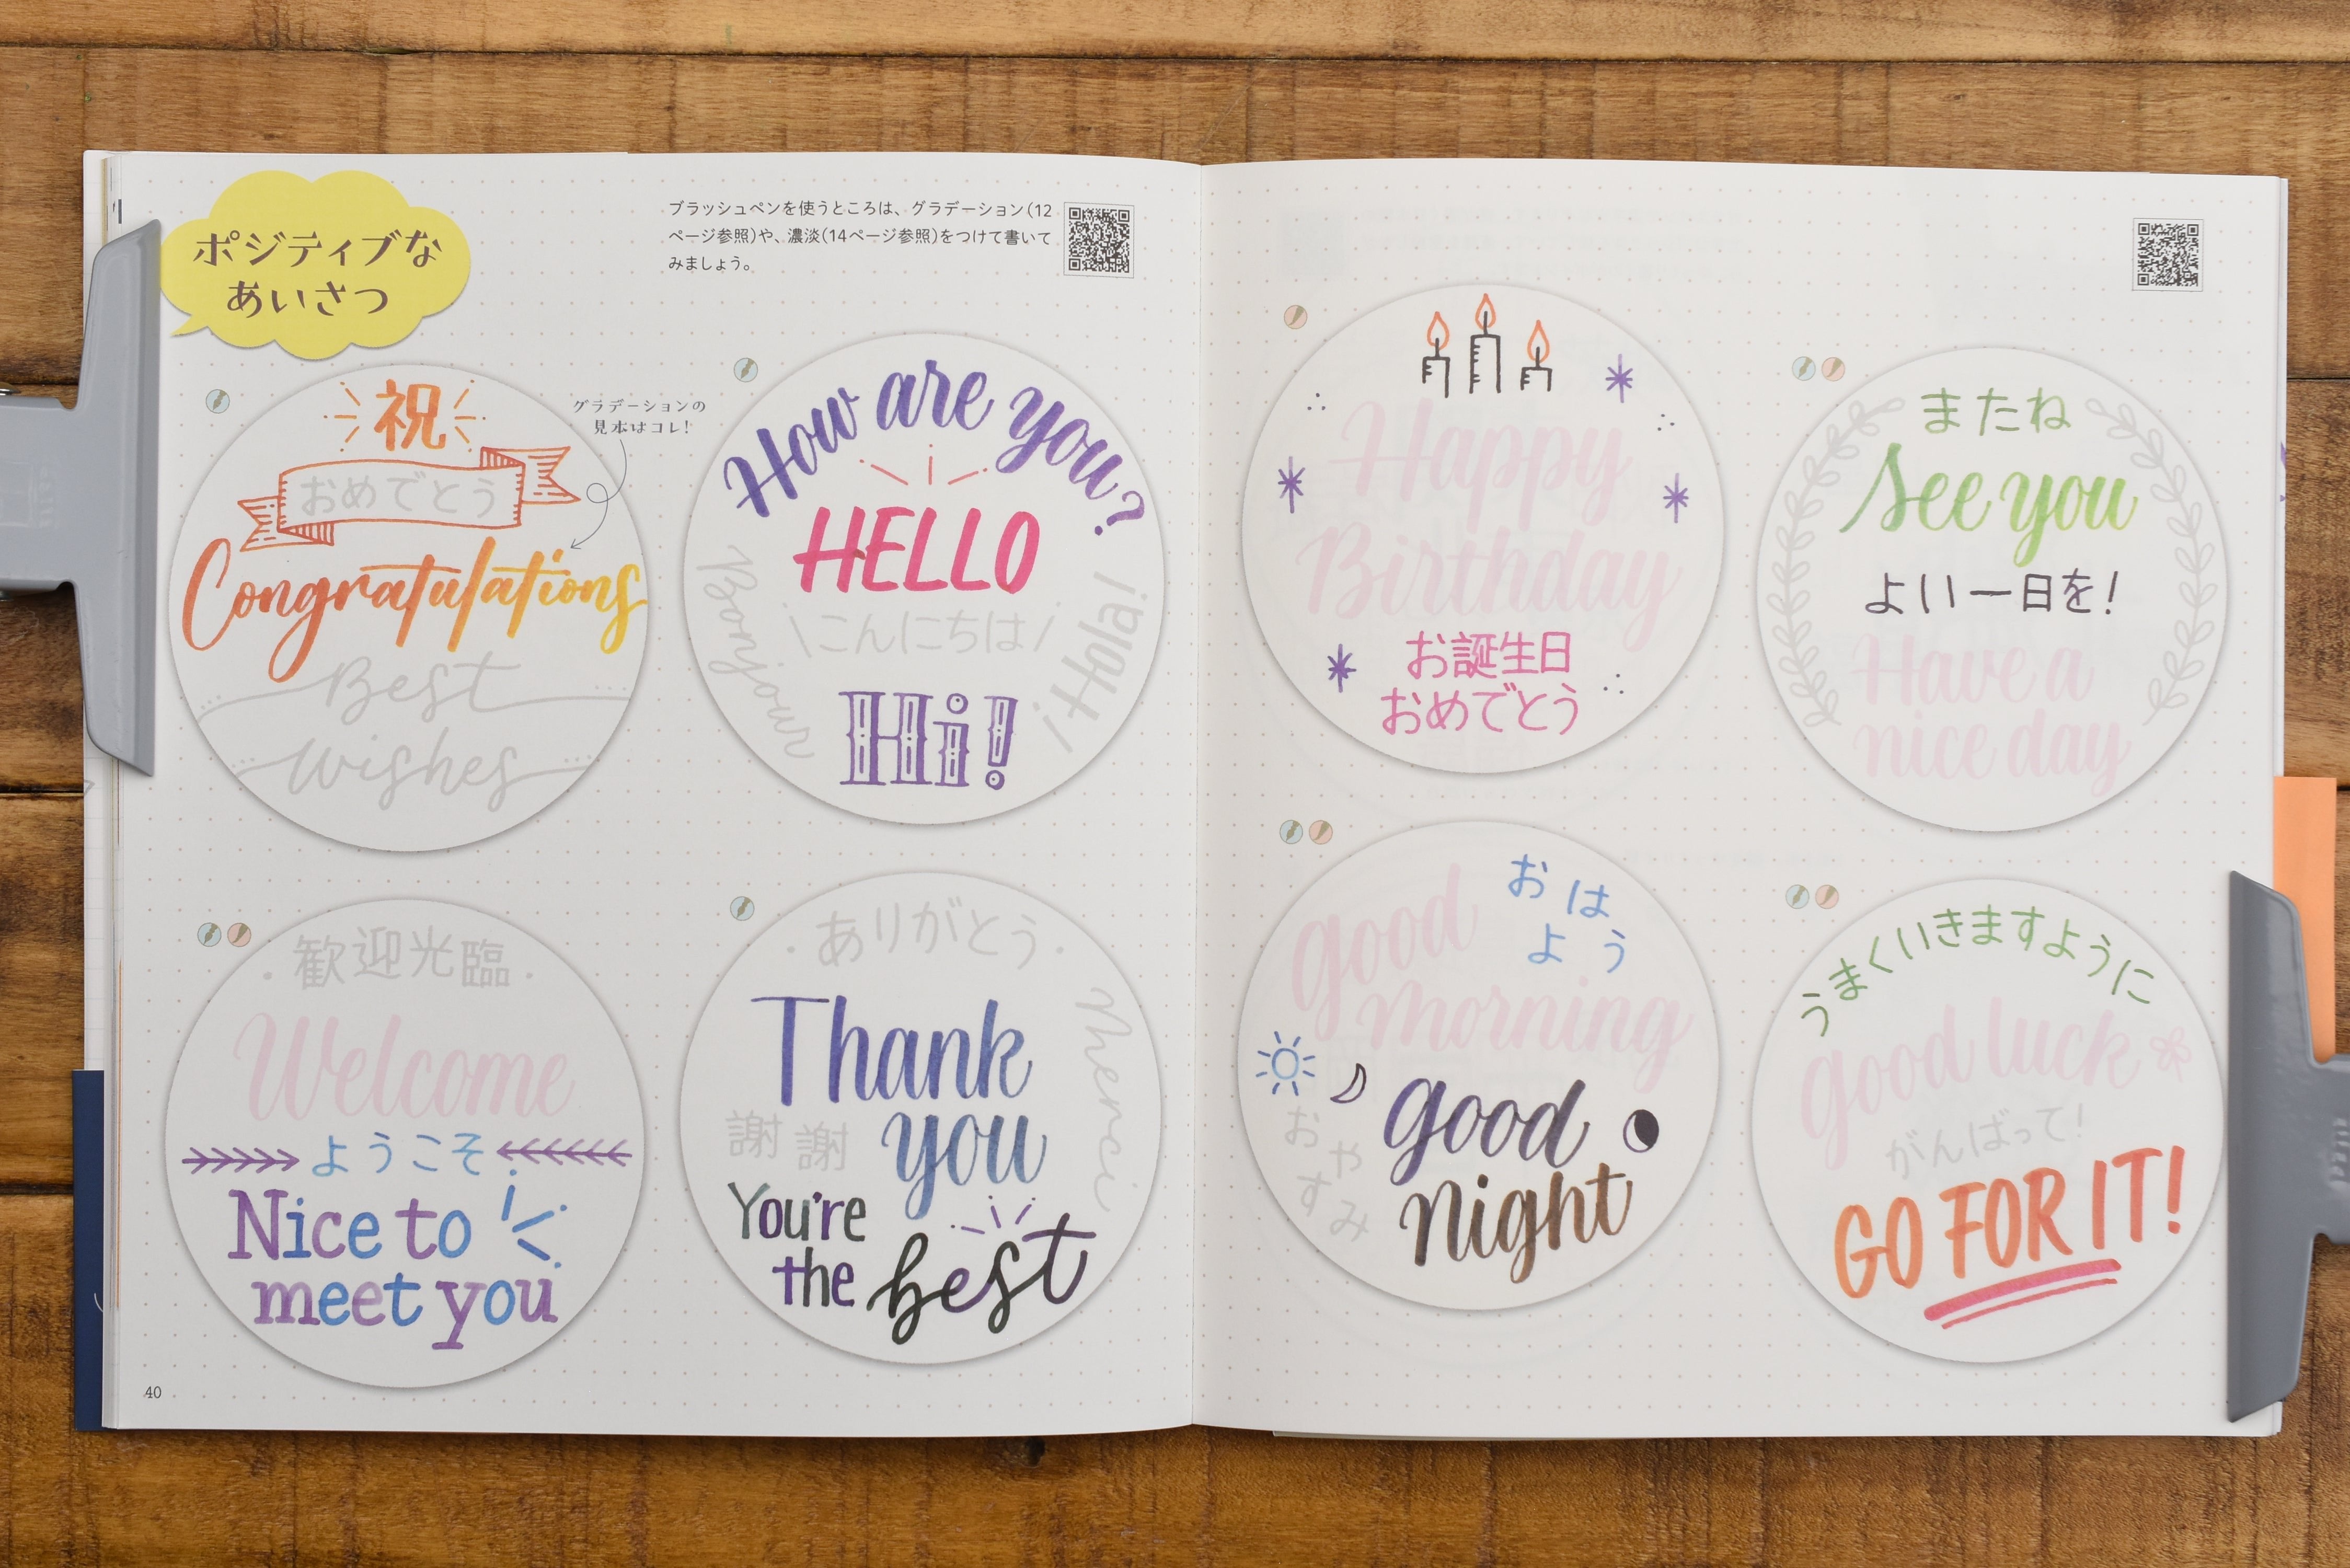 ポジティブな
あいさつ
ブラッシュペンを使うところは、グラデーション(12
ページ参照)や、濃淡(14ページ参照)をつけて書いて
みましょう。
祝
おめでとう
Congratulations
Best
Wishes
グラデーションの
見本はコレ!
How are you?
HELLO
\こんにちは/
Bonjour
¡Hola!
Hi!
・歓迎光臨・
Welcome
ようこそ
Nice to
meet you
・ありがとう・
Thank
you
謝謝
Merci
You're
the best
40
Happy
Birthday
お誕生日
おめでとう
またね
See you
よい一日を!
Have a
nice day
good
morning
おは
よう
おやすみ
good
night
うまくいきますように
good luck
がんばって!
GO FOR IT!